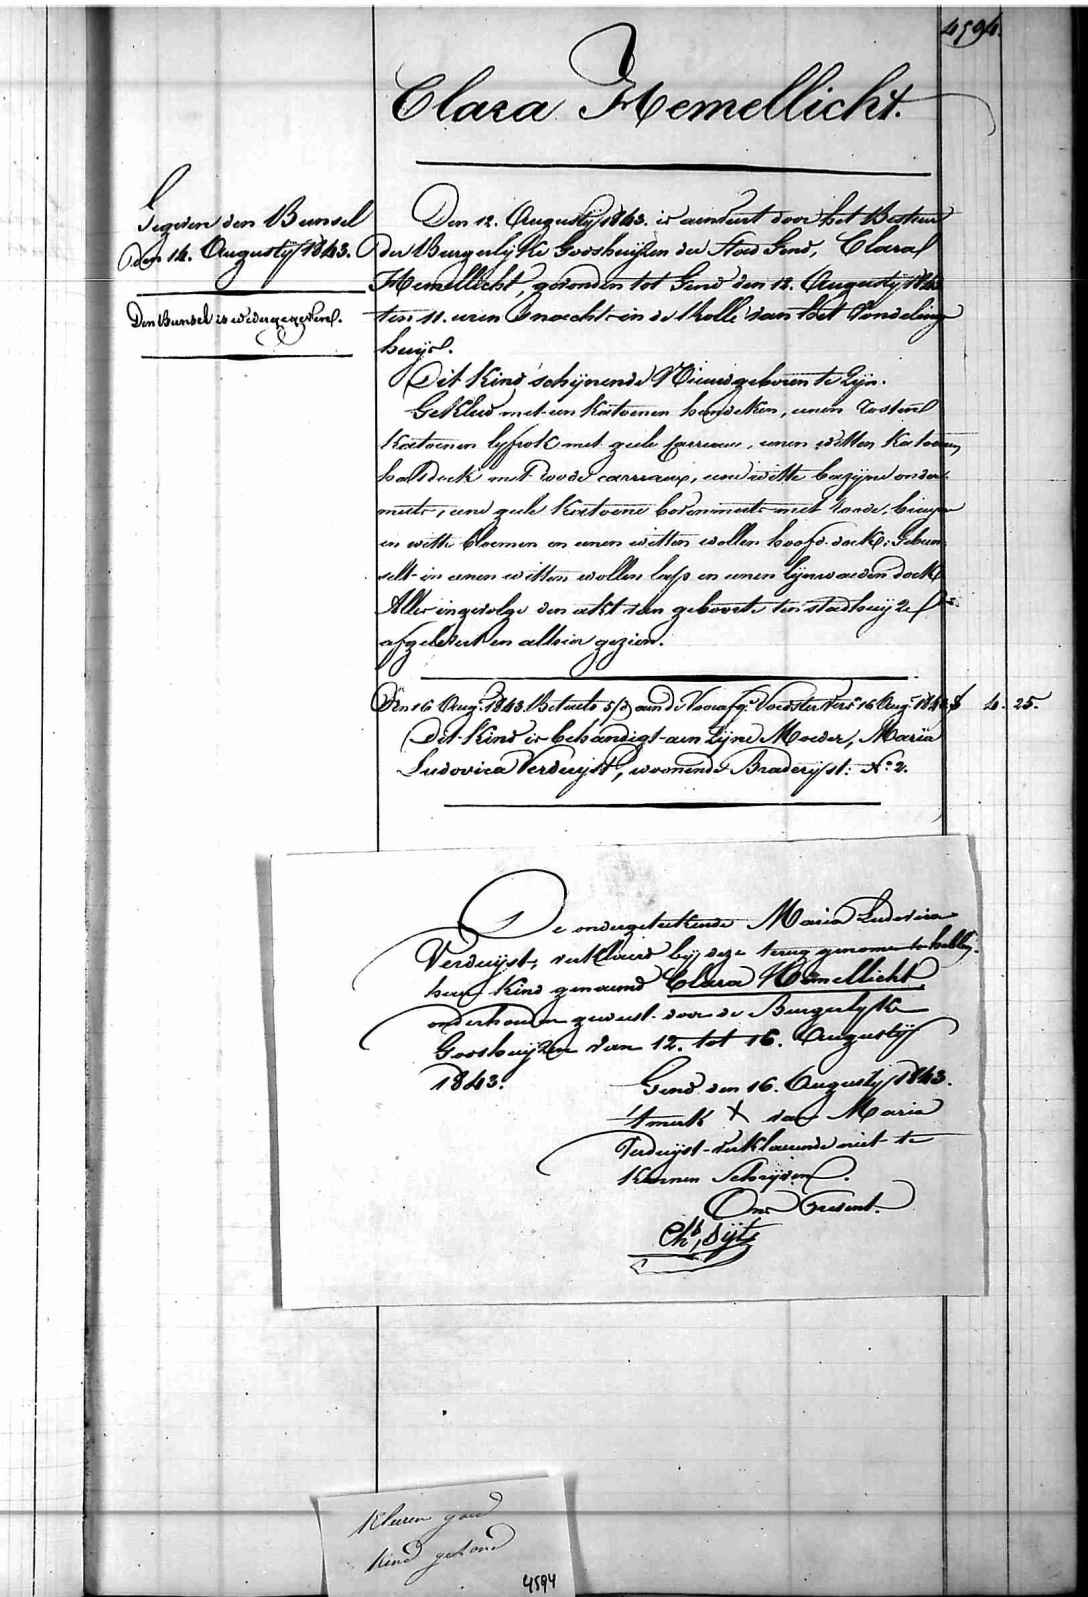 4594.
Clara Hemellicht.
Gegeven den Bunsel
Den 14. Augusty 1843.
Den Bunsel is wedergegeven.
Den 12. Augusty 1843. is aenveert door het Bestuur
der Burgerlyke Godshuyzen der Stad Gend, Clara
Hemellicht, gevonden tot Gend den 12. Augusty 1843
ten 11. uren snachts in de Rolle van het Vondeling
huys.
Dit Kind schynende Nieuwgeboren te Zyn.
Gekleed met een Katoenen hemdeken, eenen
Katoenen lyfrok met geele Carreaux, eenen witten Katoenen
halsdoek met Roode carreaux, eene witte bazyne onder
muts, eene geele Katoene bovenmuts met roode, bruyne
en witte bloemen en eenen witten wollen hoofd doek; Gebun
selt in eenen witten wollen laps en eenen lynwaeden doek
Alles ingevolge den akt van geboorte ten stadhuyze
afgelevert en alhier gezien.
Den 16 Aug. 1843. Betaelt aen de Voedster vers 16 Aug. 1843. f 4. 25.
Dit Kind is behandigt aen Zyne Moeder, Maria
Ludovica Verduyst, woonende Braderyst: No. 2.
De ondergeteekende Maria Ludovica
Verduyst, verklaerd by deze terug genomen te hebben
heur Kind genaemd Clara Hemellicht
onderhouden geweest door de Burgerlyke
Godshuyzen van 12. tot 16. Augusty
1843.
Gend den 16. Augusty 1843.
't merk X van Maria
Verduyst verklaerende niet te
Konnen Schryven.
Ons Present.
Kleeren goed
Kind gezond
4594